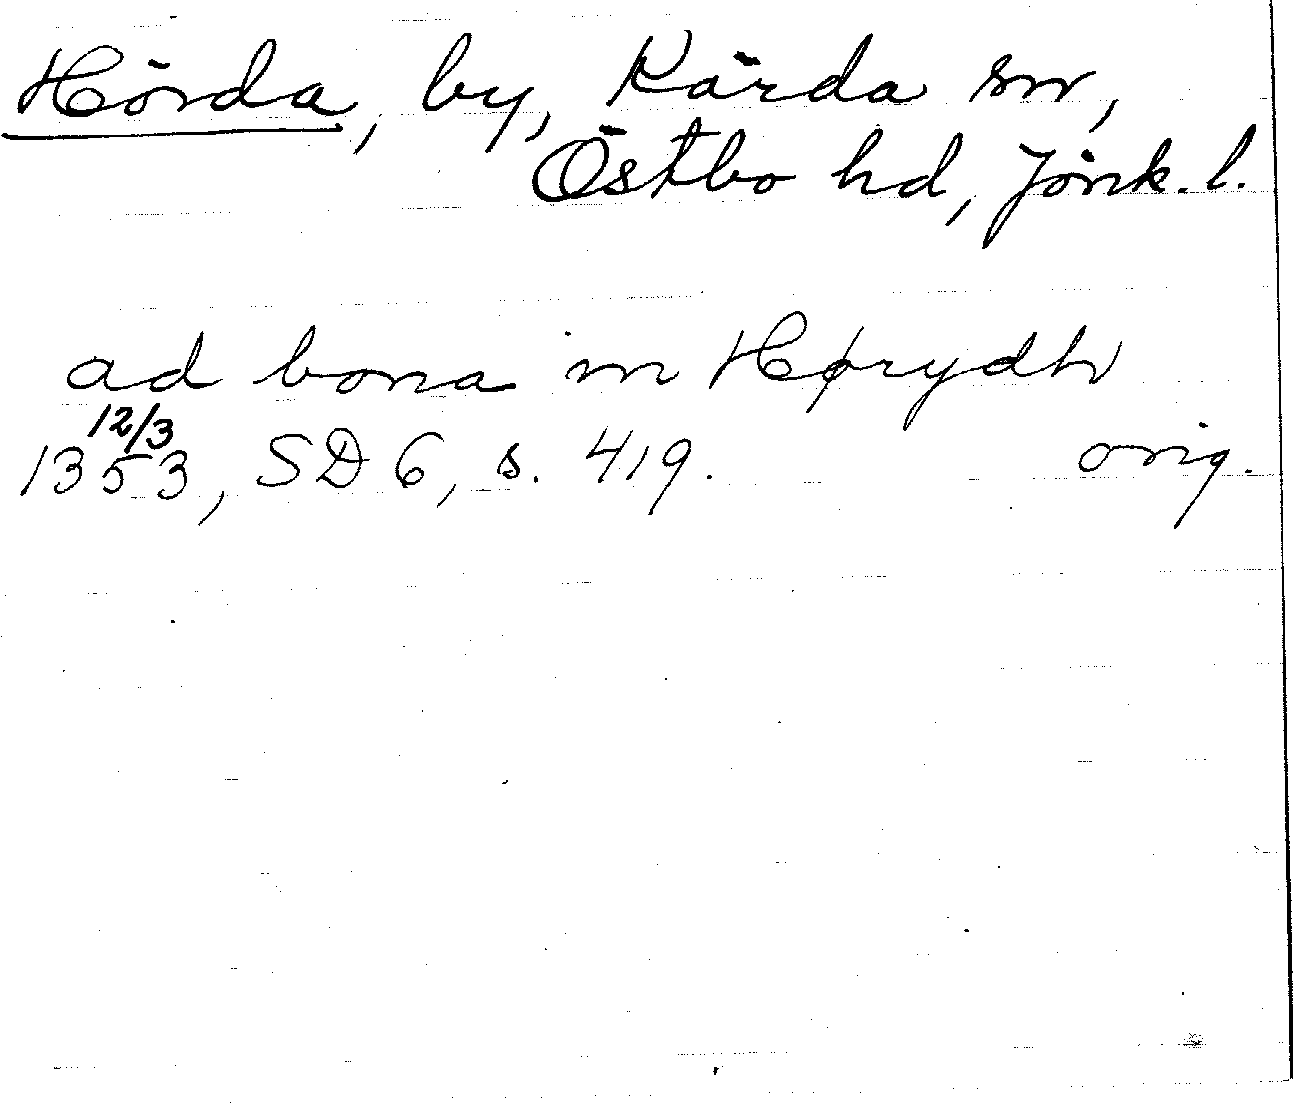 Hörda, by, Kärda sn,
Östbo hd, Jönk. l.
ad bona in Hørydh
12/3
1353, SD 6, s. 419. orig.